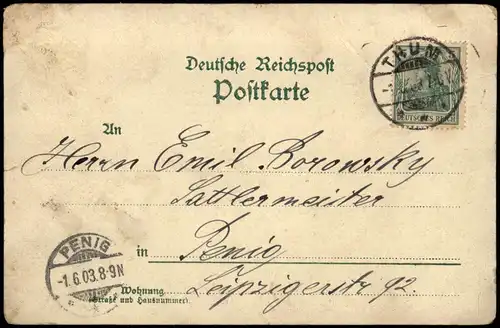 Deutsche Reichspost
Postkarte
THUM
DEUTSCHES REICH
An
Herrn Emil Borowsky
Sattlermeister
in Penig
PENIG
-1.6.03.8-9N
Leipzigerstr 92.
Wohnung
(Straße und Hausnummer)